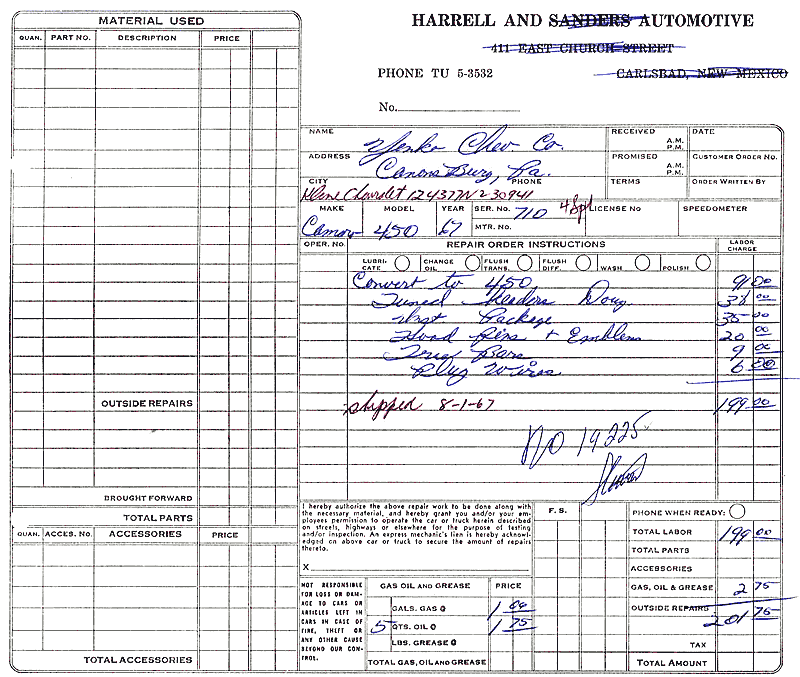 HARRELL AND SANDERS AUTOMOTIVE
411 EAST CHURCH STREET
PHONE TU 5-3532 CARLSBAD, NEW MEXICO
No.
MATERIAL USED
QUAN. PART NO. DESCRIPTION PRICE
OUTSIDE REPAIRS
BROUGHT FORWARD
TOTAL PARTS
QUAN. ACCES. NO. ACCESSORIES PRICE
TOTAL ACCESSORIES
NAME Yenko Chev Co.
ADDRESS Canonsburg, Pa.
CITY PHONE
Kline Chevrolet 124377N230941
RECEIVED A.M. P.M. DATE
PROMISED A.M. P.M. CUSTOMER ORDER NO.
TERMS ORDER WRITTEN BY
MAKE MODEL YEAR SER. NO. 710 4 Spd LICENSE NO SPEEDOMETER
Camaro 450 67 MTR. NO.
OPER. NO. REPAIR ORDER INSTRUCTIONS LABOR CHARGE
LUBRI-CATE CHANGE OIL FLUSH TRANS. FLUSH DIFF. WASH POLISH
Convert to 450 91 00
Tuned Headers Doug 38 00
Inst Package 35 00
Hood Pins + Emblems 20 00
Trac Bars 9 00
Plug Wires 6 00
shipped 8-1-67 199 00
NO 14225
I hereby authorize the above repair work to be done along with
the necessary material, and hereby grant you and/or your em-
ployees permission to operate the car or truck herein described
on streets, highways or elsewhere for the purpose of testing
and/or inspection. An express mechanic's lien is hereby acknowl-
edged on above car or truck to secure the amount of repairs
thereto.
X
F. S.
PHONE WHEN READY:
TOTAL LABOR 199 00
TOTAL PARTS
ACCESSORIES
GAS, OIL & GREASE 2 75
OUTSIDE REPAIRS 201 75
TAX
TOTAL AMOUNT
NOT RESPONSIBLE
FOR LOSS OR DAM-
AGE TO CARS OR
ARTICLES LEFT IN
CARS IN CASE OF
FIRE, THEFT OR
ANY OTHER CAUSE
BEYOND OUR CON-
TROL.
GAS OIL AND GREASE PRICE
GALS. GAS @ 1 00
5 QTS. OIL @ 1 75
LBS. GREASE @
TOTAL GAS, OIL AND GREASE